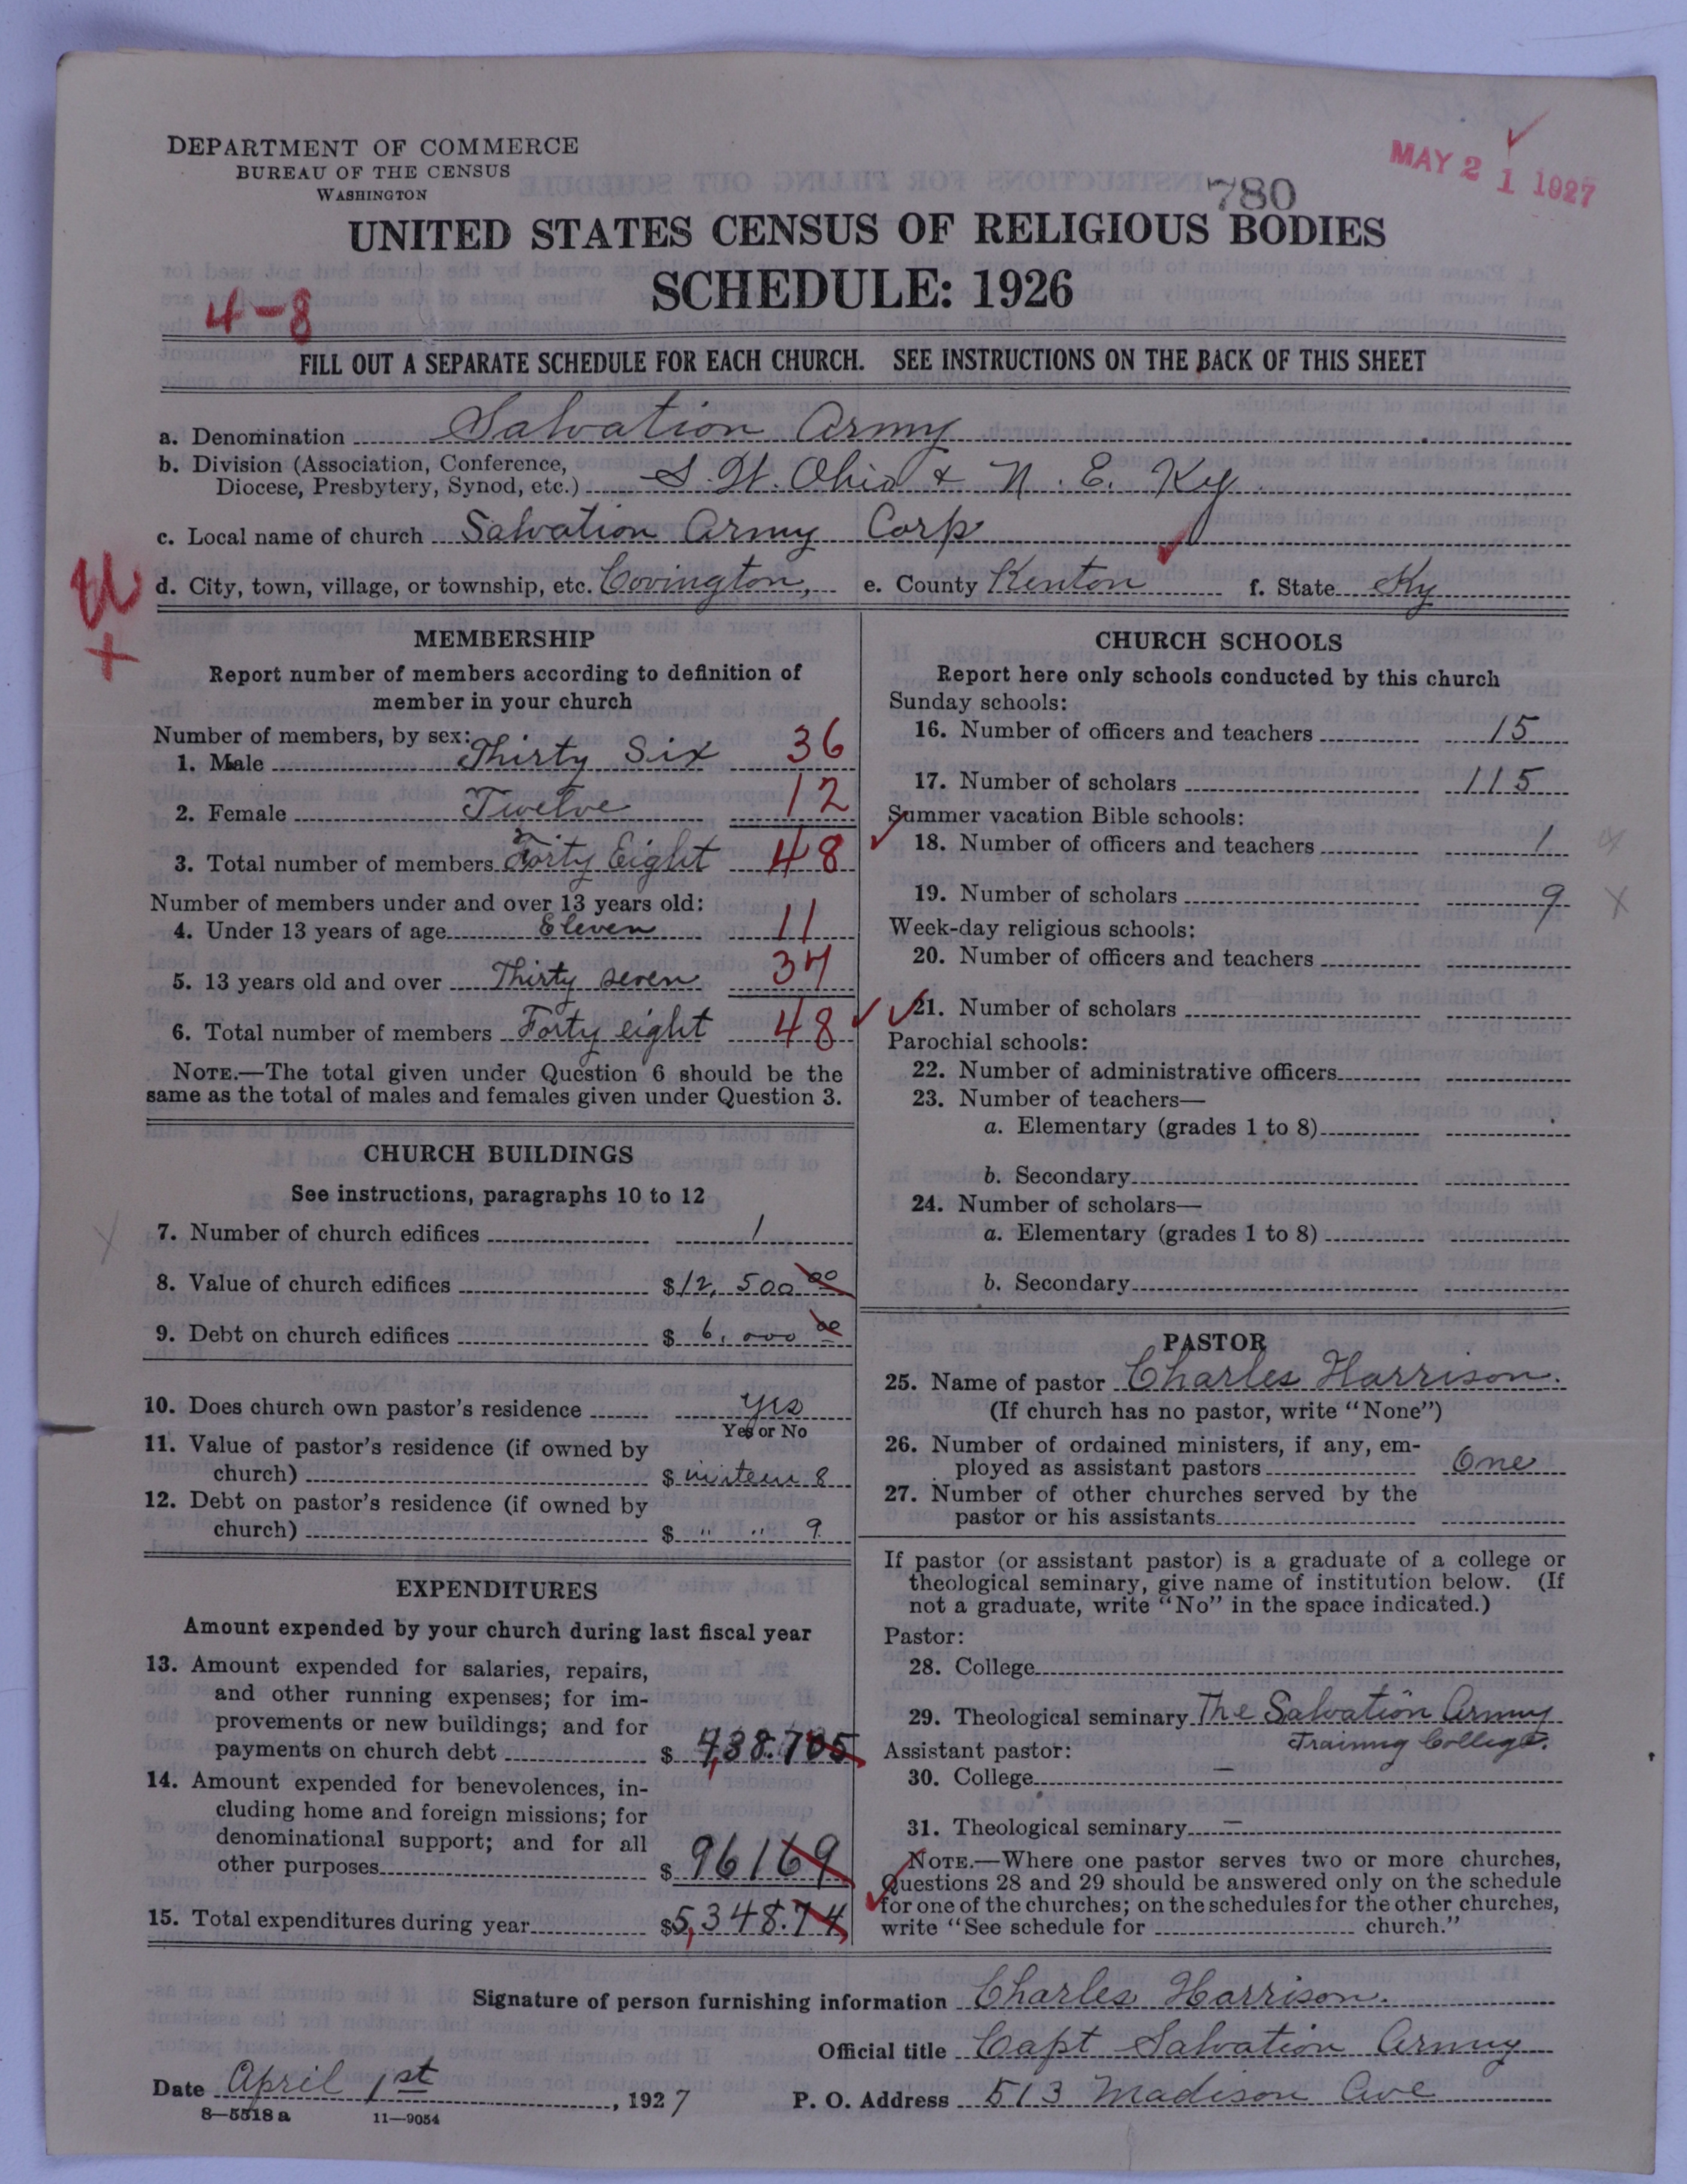 DEPARTMENT OF COMMERCE
BUREAU OF THE CENSUS
WASHINGTON
MAY 21 1927
780
UNITED STATES CENSUS OF RELIGIOUS BODIES
SCHEDULE: 1926
4-8
FILL OUT A SEPARATE SCHEDULE FOR EACH CHURCH. SEE INSTRUCTIONS ON THE BACK OF THIS SHEET
a. Denomination Salvation Army
b. Division (Association, Conference,
Diocese, Presbytery, Synod, etc.) S.W. Ohio & N.E. Ky
c. Local name of church Salvation Army Corp
d. City, town, village, or township, etc. Covington, e. County Kenton f. State Ky
MEMBERSHIP
Report number of members according to definition of
member in your church
Number of members, by sex:
1. Male Thirty Six 36
2. Female Twelve 12
3. Total number of members Forty Eight 48
Number of members under and over 13 years old:
4. Under 13 years of age Eleven 11
5. 13 years old and over Thirty seven 37
6. Total number of members Forty eight 48
NOTE.—The total given under Question 6 should be the
same as the total of males and females given under Question 3.
CHURCH BUILDINGS
See instructions, paragraphs 10 to 12
7. Number of church edifices 1
8. Value of church edifices $12,500 00
9. Debt on church edifices $ 6,000 00
10. Does church own pastor's residence yes
Yes or No
11. Value of pastor's residence (if owned by
church) $ 8
12. Debt on pastor's residence (if owned by
church) $ " " 9
EXPENDITURES
Amount expended by your church during last fiscal year
13. Amount expended for salaries, repairs,
and other running expenses; for im-
provements or new buildings; and for
payments on church debt $ 4,38.705
14. Amount expended for benevolences, in-
cluding home and foreign missions; for
denominational support; and for all
other purposes $ 96169
15. Total expenditures during year $5,348.74
CHURCH SCHOOLS
Report here only schools conducted by this church
Sunday schools:
16. Number of officers and teachers 15
17. Number of scholars 115
Summer vacation Bible schools:
18. Number of officers and teachers 1
19. Number of scholars 9
Week-day religious schools:
20. Number of officers and teachers
21. Number of scholars
Parochial schools:
22. Number of administrative officers
23. Number of teachers—
a. Elementary (grades 1 to 8)
b. Secondary
24. Number of scholars—
a. Elementary (grades 1 to 8)
b. Secondary
PASTOR
25. Name of pastor Charles Harrison.
(If church has no pastor, write "None")
26. Number of ordained ministers, if any, em-
ployed as assistant pastors One
27. Number of other churches served by the
pastor or his assistants
If pastor (or assistant pastor) is a graduate of a college or
theological seminary, give name of institution below. (If
not a graduate, write "No" in the space indicated.)
Pastor:
28. College
29. Theological seminary The Salvation Army
Training College.
Assistant pastor:
30. College —
31. Theological seminary —
NOTE.—Where one pastor serves two or more churches,
Questions 28 and 29 should be answered only on the schedule
for one of the churches; on the schedules for the other churches,
write "See schedule for church."
Signature of person furnishing information Charles Harrison.
Official title Capt Salvation Army
Date April 1st, 1927 P. O. Address 513 Madison Ave
8—5518a 11—9054